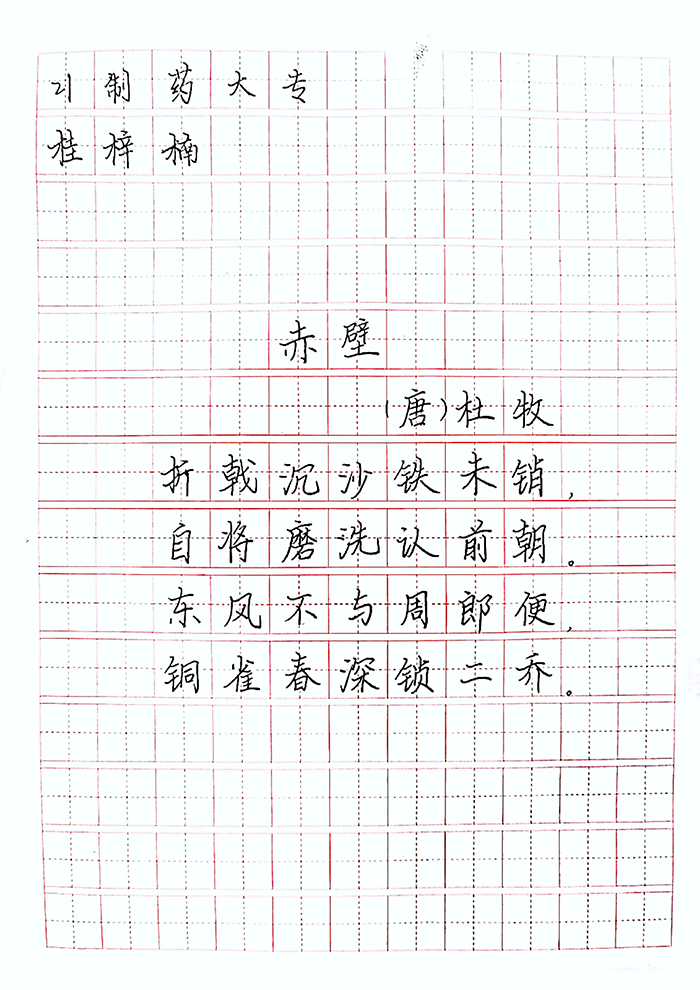 21制药大专
桂梓楠
赤壁
（唐）杜牧
折戟沉沙铁未销，
自将磨洗认前朝。
东风不与周郎便，
铜雀春深锁二乔。